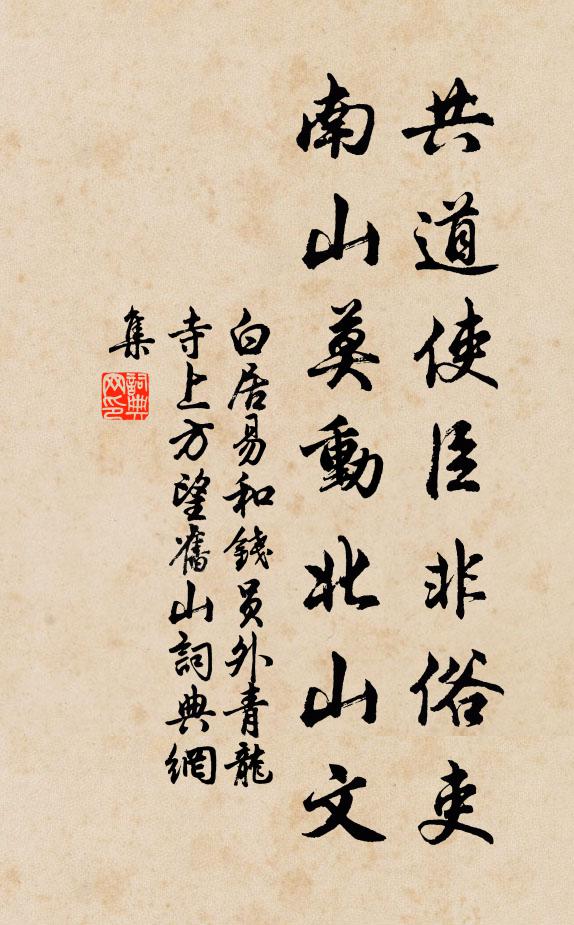 共道使臣非俗吏
南山莫動北山文
白居易和錢員外青龍
寺上方望舊山詞典網
集
詞典
网印